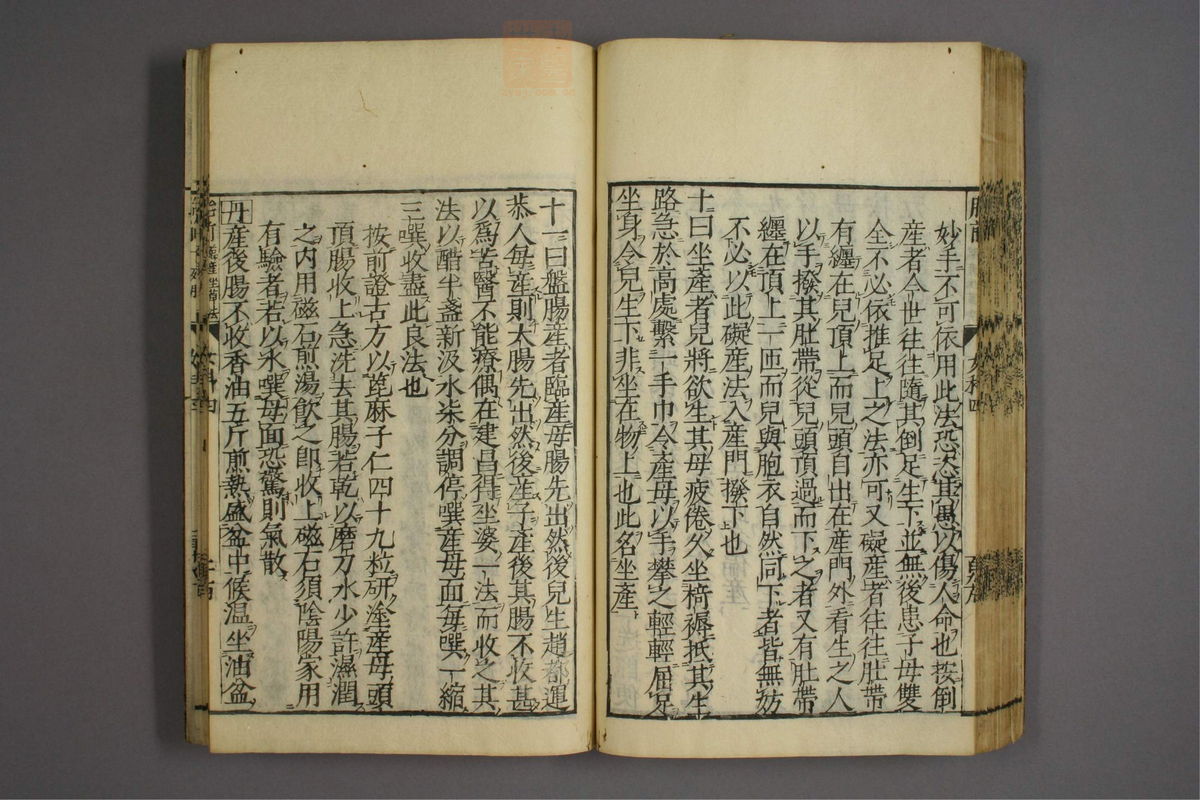 妙手不可依用此法恐恣其愚以傷人命也按倒
産者今世往往隨其倒足生下並無後患子母雙
全不必依推足上之法亦可又礙産者往往肚帶
有纏在兒頂上而兒頭自出在産門外看生之人
以手撥其肚帶從兒頭頂過而下之者又有肚帶
纏在頂上一匝而兒與胞衣自然同下者皆無妨
不必以此礙産法入産門撥下也
十曰坐産者兒將欲生其母疲倦久坐椅褥抵其生
路急於高處繫一手巾令産母以手攀之輕輕屈足
坐身令兒生下非坐在物上也此名坐産
十一曰盤腸産者臨産母腸先出然後兒生趙都運
恭人每産則大腸先出然後産子産後其腸不收甚
以爲苦醫不能療偶在建昌得坐婆一法而收之其
法以醋半盞新汲水柒分調停噀産母面每噀一縮
三噀收盡此良法也
按前證古方以蓖麻子仁四十九粒研塗産母頭
頂腸收上急洗去其腸若乾以磨刀水少許濕潤
之内用磁石煎湯飲之卽收上磁石須陰陽家用
有驗者若以水噀母面恐驚則氣散
丹産後腸不收香油五斤煎熱盛盆中候温坐油盆
女科四